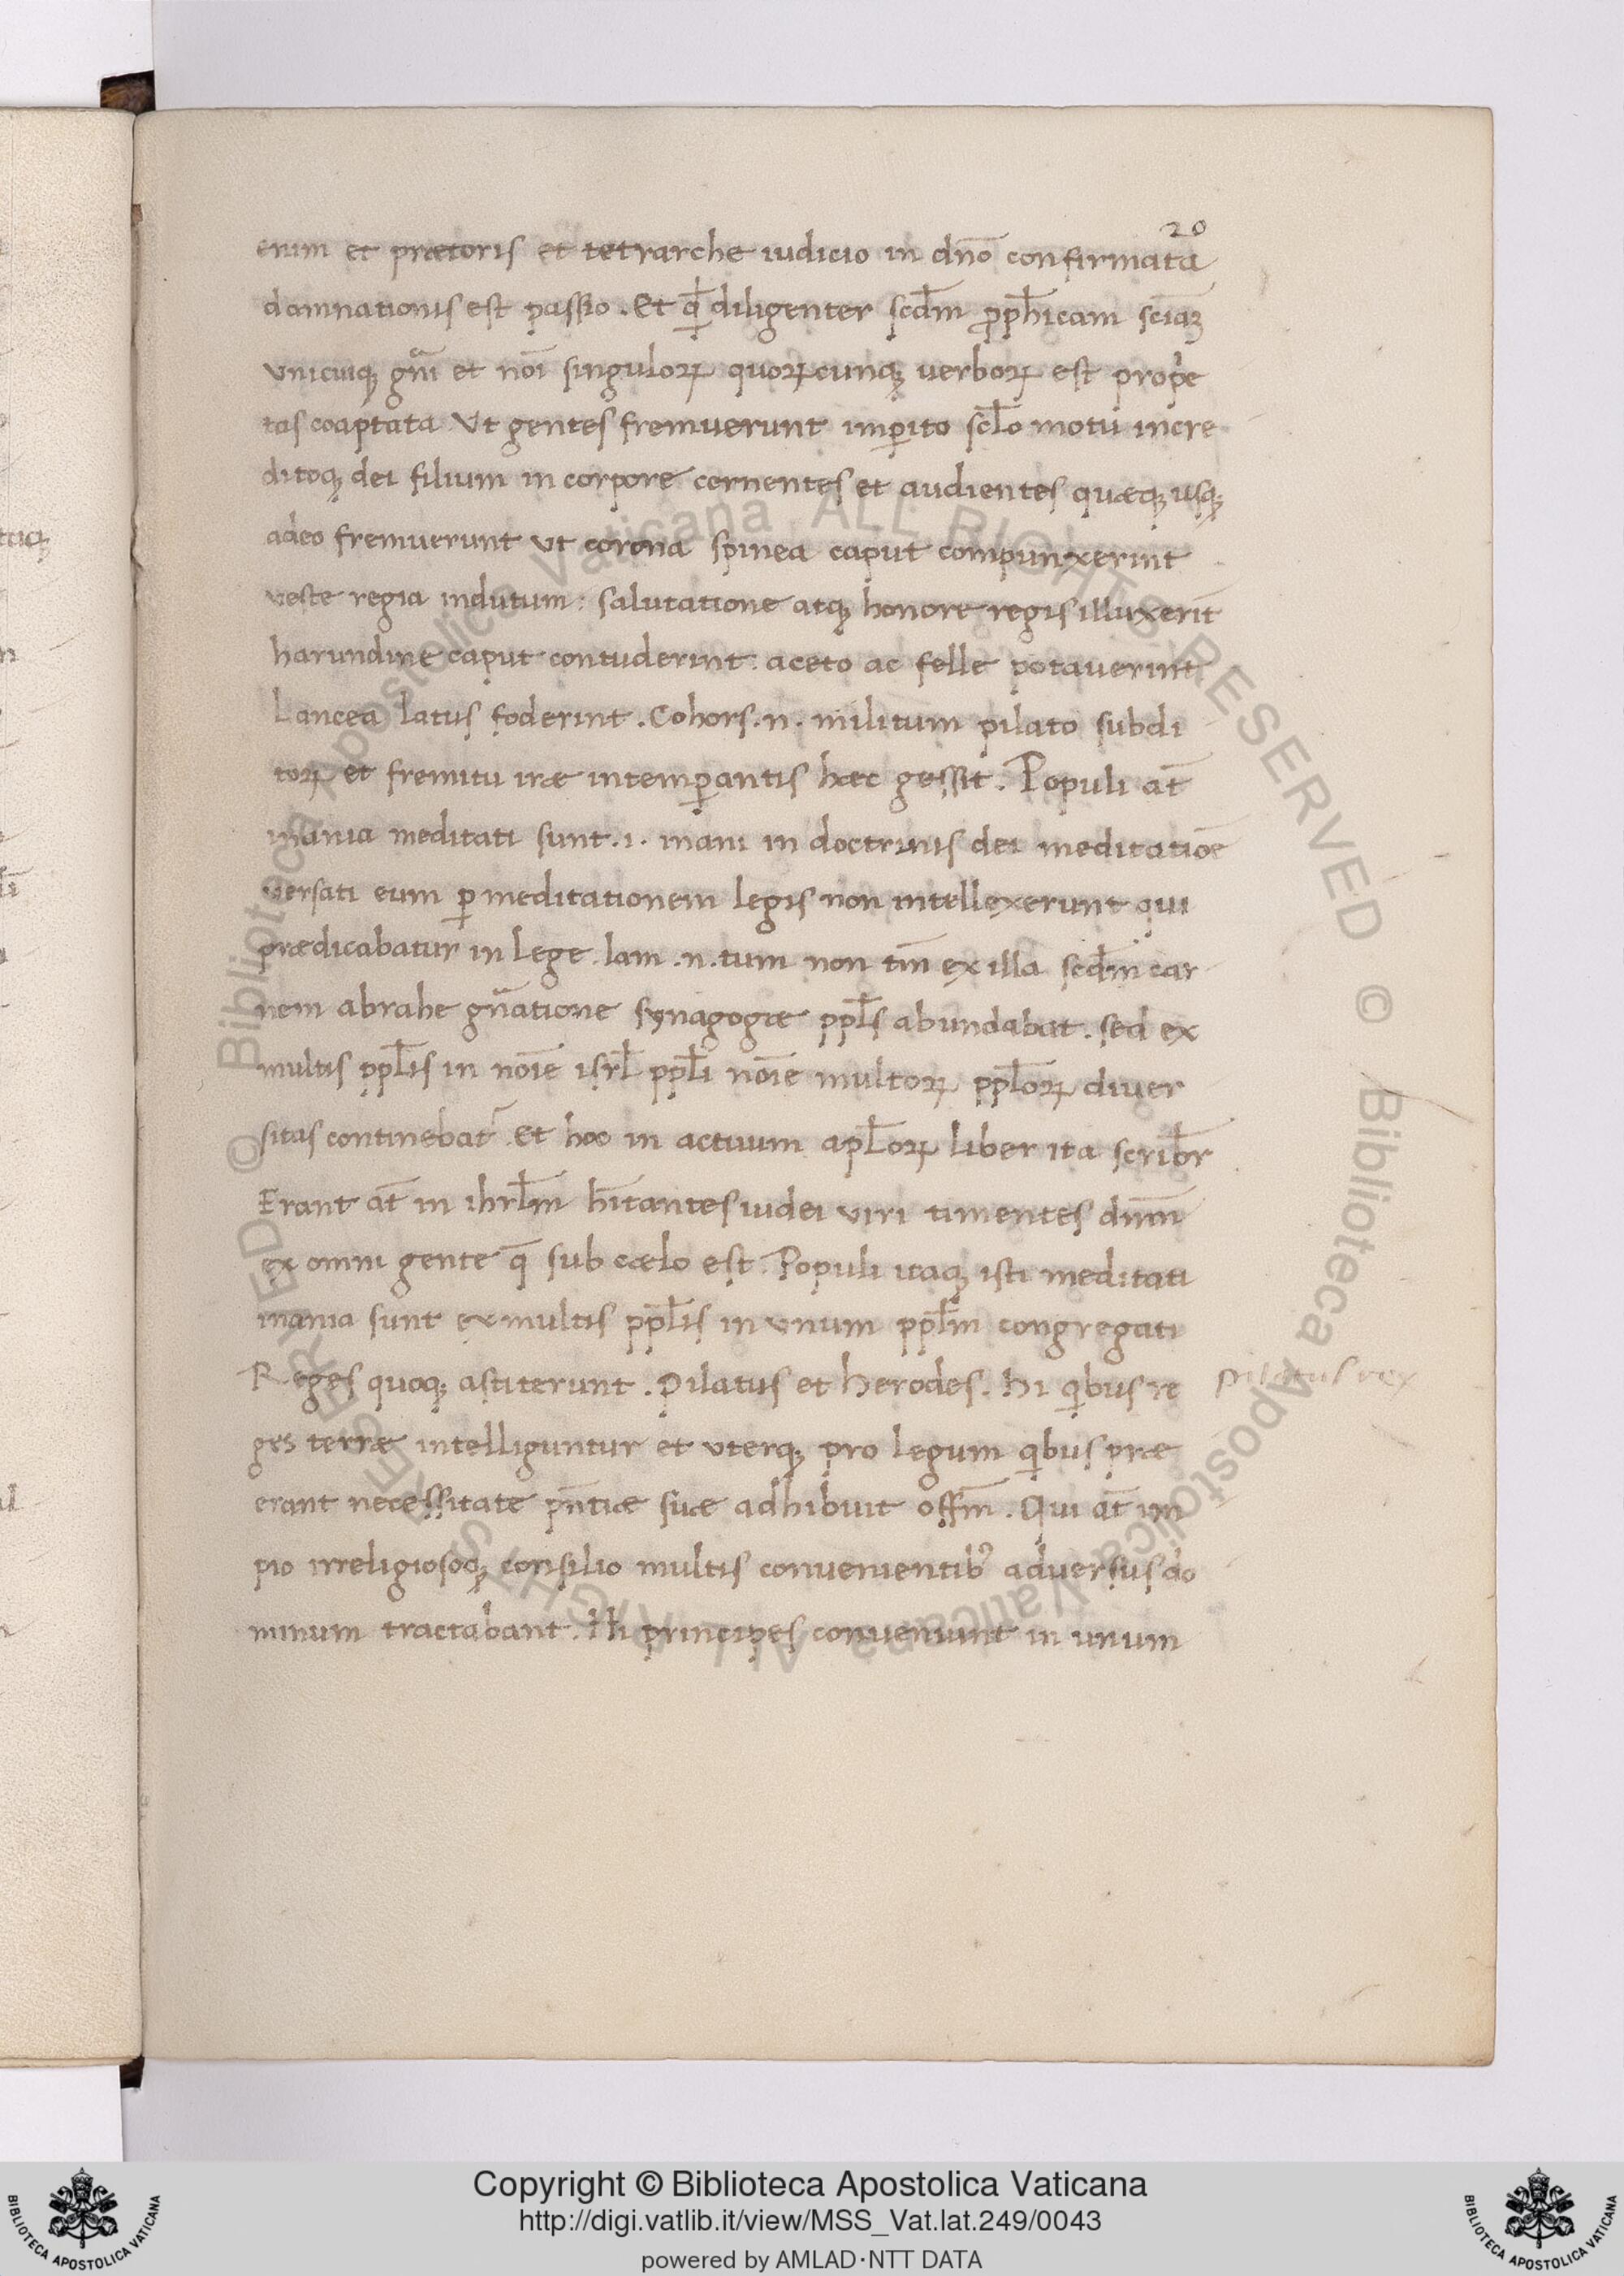 20
enim et prætoris et tetrarche iudicio in dn̄o confirmata
damnationis est passio. Et qđ diligenter scd̄m ꝓpħicam sciaꝫ
vnicuiqꝫ gn̄i et noī singuloꝝ quoꝝcunqꝫ verboꝝ est prope
tas coaptata Vt gentes fremuerunt imꝑito scł̄o motu incre
ditoqꝫ dei filium in corpore cernentes et audientes quæqꝫ usqꝫ
adeo fremuerunt vt corona spinea caput compunxerint
veste regia indutum: salutatione atqꝫ honore regis illuxerīt
harundine caput contuderint: aceto ac felle potauerint
Lancea latus foderint. Cohors .n. militum pilato subdi
toꝝ et fremitu iræ intemꝑantis hæc gessit. Populi at̄
inania meditati sunt .i. inani in doctrinis dei meditatiōe
versati eum ꝑ meditationem legis non intellexerunt qui
prædicabatur in lege. Iam .n. tum non tm̄ ex illa scd̄m car
nem abrahe gn̄atione synagogæ ppłs abundabat. sed ex
multis ppłis in noīe isrł ppłi noīe multoꝝ ppłoꝝ diuer
sitas continebat̄ et hoc in actuum apłoꝝ liber ita scribr̄
Erant at̄ in ihrłm hītantes iudei viri timentes dnm̄
ex omni gente q̄ sub cælo est. Populi itaqꝫ isti meditati
inania sunt ex multis ppłis in vnum ppłm congregati
Reges quoqꝫ astiterunt. Pilatus et Herodes. hi qibus re
pilatus rex
ges terræ intelliguntur et vterqꝫ pro legum qibus præ
erant necessitate pn̄tiæ suæ adhibuit offm̄. Qui at̄ im
pio irreligiosoqꝫ consilio multis conuenientibꝰ aduersus do
minum tractabant. Hi principes conueniunt in unum
Copyright © Biblioteca Apostolica Vaticana
http://digi.vatlib.it/view/MSS_Vat.lat.249/0043
powered by AMLAD·NTT DATA
BIBLIOTECA APOSTOLICA VATICANA
BIBLIOTECA APOSTOLICA VATICANA
© Biblioteca Apostolica Vaticana ALL RIGHTS RESERVED © Biblioteca Apostolica Vaticana ALL RIGHTS RESERVED